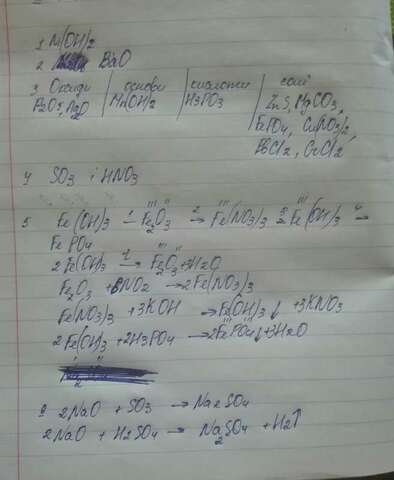 1 Ni(OH)2
2 BaO
3 Оксиди | основи | кислоти | солі
P2O5, Ag2O | Mn(OH)2 | H3PO3 | ZnS, MgCO3,
FePO4, Cu(NO3)2,
PbCl2, CrCl2
4 SO3 i HNO3
5 Fe(OH)3 1→ Fe2O3 2→ Fe(NO3)3 3→ Fe(OH)3 4→
FePO4
2Fe(OH)3 → Fe2O3 + 3H2O
Fe2O3 + 6NO2 → 2Fe(NO3)3
Fe(NO3)3 + 3KOH → Fe(OH)3↓ + 3KNO3
2Fe(OH)3 + 2H3PO4 → 2FePO4↓ + 3H2O
2NaO + SO3 → Na2SO4
2NaO + H2SO4 → Na2SO4 + H2↑